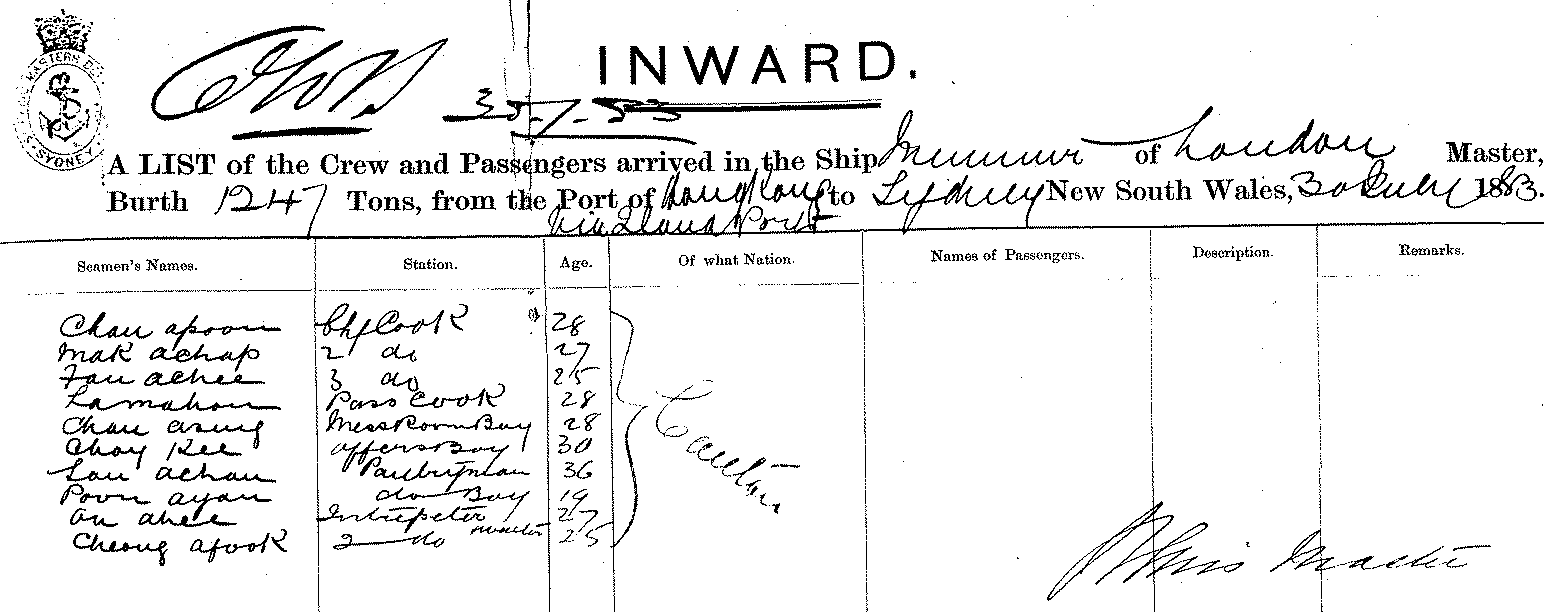 INWARD.
30-7-83
A LIST of the Crew and Passengers arrived in the Ship of London Master,
Burth 1247 Tons, from the Port of Hong Kong to Sydney New South Wales, 30 July 1883.
via Ports
SYDNEY
Seamen's Names. Station. Age. Of what Nation. Names of Passengers. Description. Remarks.
Chau apoon Chf Cook 28
Mak achap 2 do 27
Fau achee 3 do 25
Lamahon Pass Cook 28
Chau asung Mess Room Boy 28
Choy Kee offers Boy 30
Lau achau Pantryman 36
Poon ayau do Boy 19
On ahee Intrepeter 27
Cheong afook 2 do 25
Canton
Master